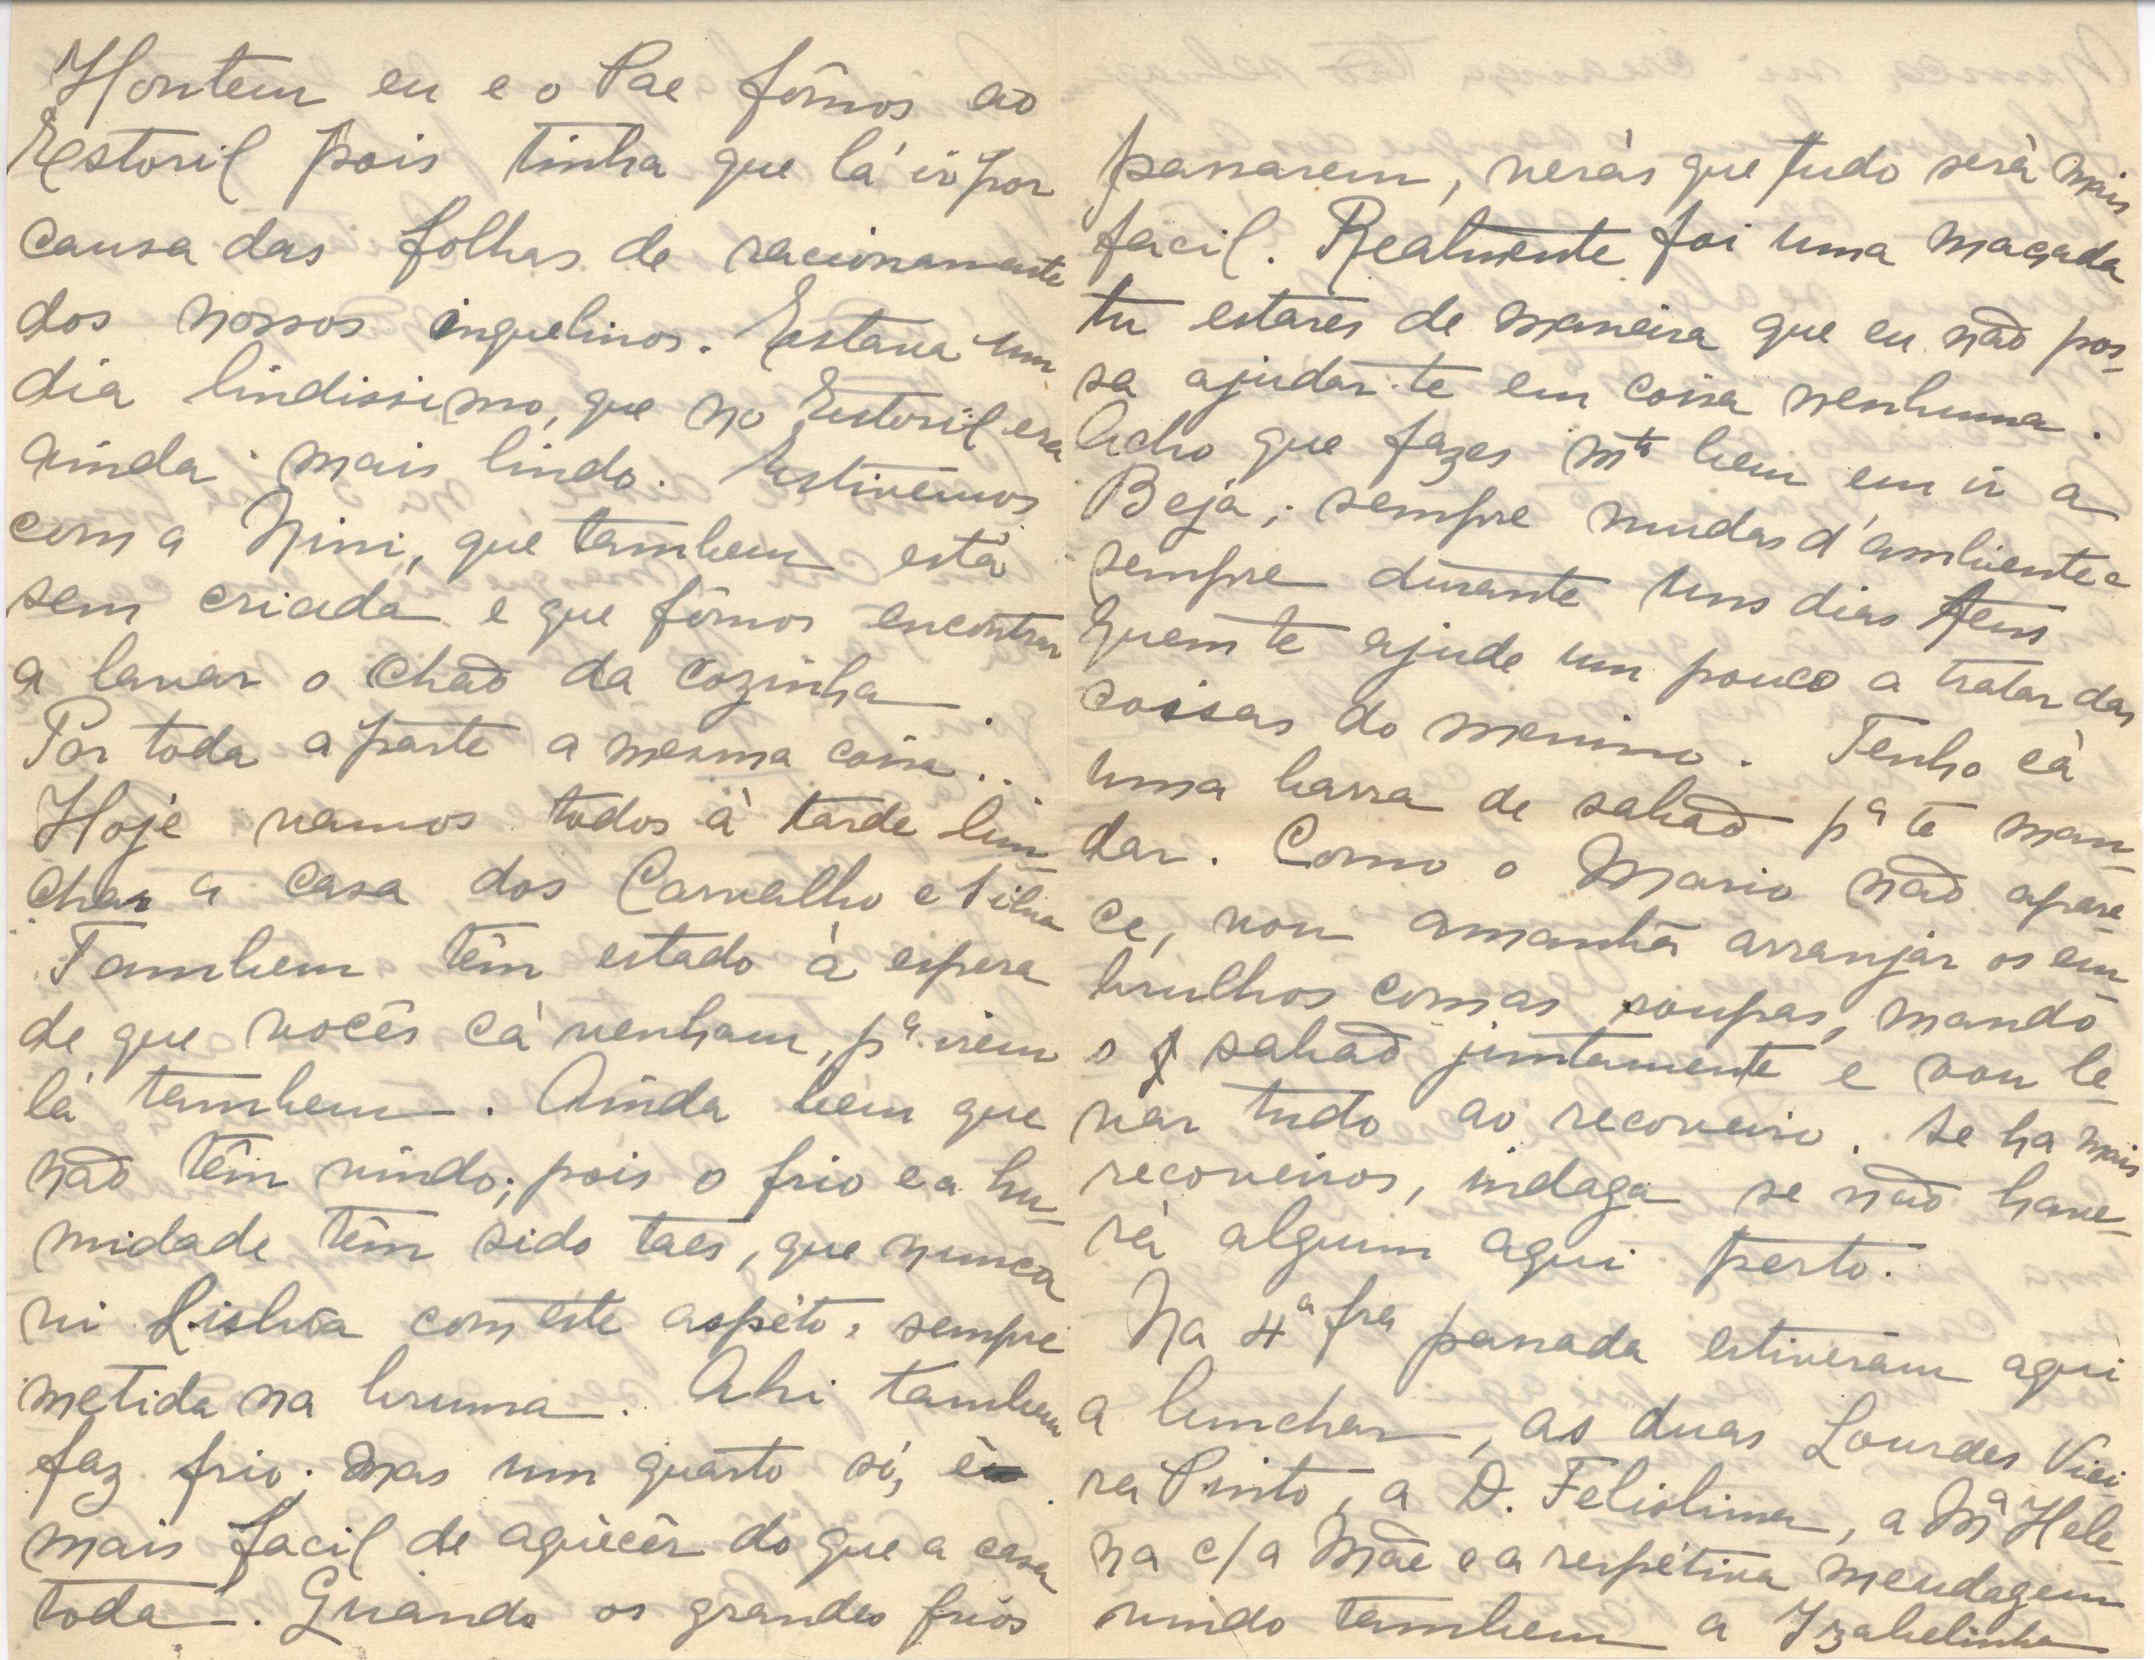 Hontem eu e o Pae fômos ao
Estoril pois tinha que lá ir por
causa das folhas de racionamento
dos nossos inquelinos. Estava um
dia lindissimo, que no Estoril era
ainda mais lindo. Estivémos
com a Nini, que tambem está
sem criada e que fômos encontrar
a lavar o chão da cozinha.
Por toda a parte a mesma coisa..
Hoje vamos todos à tarde lun-
char a casa dos Carvalho e Silva
Tambem têm estado à espera
de que vocês cá venham, pª irem
lá tambem. Ainda bem que
não têm vindo; pois o frio e a hu-
midade têm sido taes, que nunca
vi Lisbôa com este aspéto, sempre
metida na bruma. Ahi tambem
faz frio; mas um quarto só, é
mais facil de aquècêr do que a casa
toda. Quando os grandes frios
passarem, verás que tudo será mais
facil. Realmente foi uma maçada
tu estares de maneira que eu não pos-
sa ajudar-te em coisa nenhuma.
Acho que fazes mtº bem em ir a
Beja; sempre mudas d'ambiente e
sempre durante uns dias tens
quem te ajude um pouco a tratar das
coisas do menino. Tenho cá
uma barra de sabão pª te man-
dar. Como o Mario não apare-
ce, vou amanhã arranjar os em-
brulhos com as roupas, mando
o sabão juntamente e vou le-
var tudo ao recoveiro. Se ha mais
recoveiros, indaga se não have-
rá algum aqui perto.
Na 4ª fra passada estiveram aqui
a lunchar, as duas Lourdes Viei
ra Pinto, a D. Felisbina, a Mª Hele-
na c/a Mãe e a respétiva meudagem
vindo tambem a Izabelinha